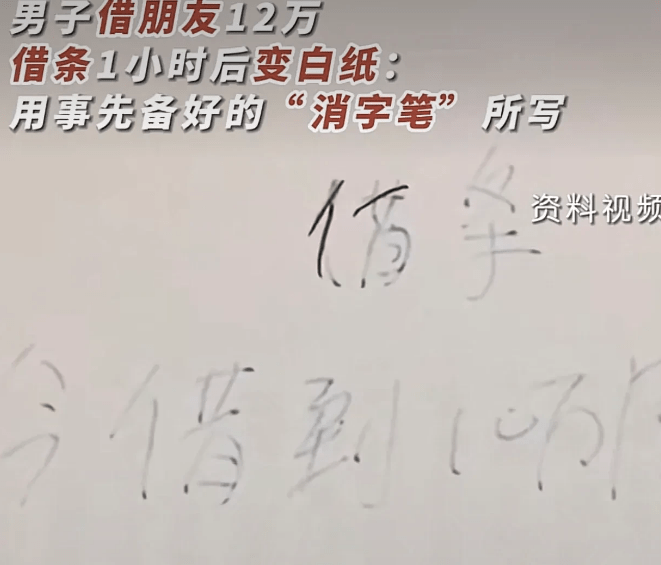 男子借朋友12万
借条1小时后变白纸：
用事先备好的“消字笔”所写
借条
资料视频
今借到12万